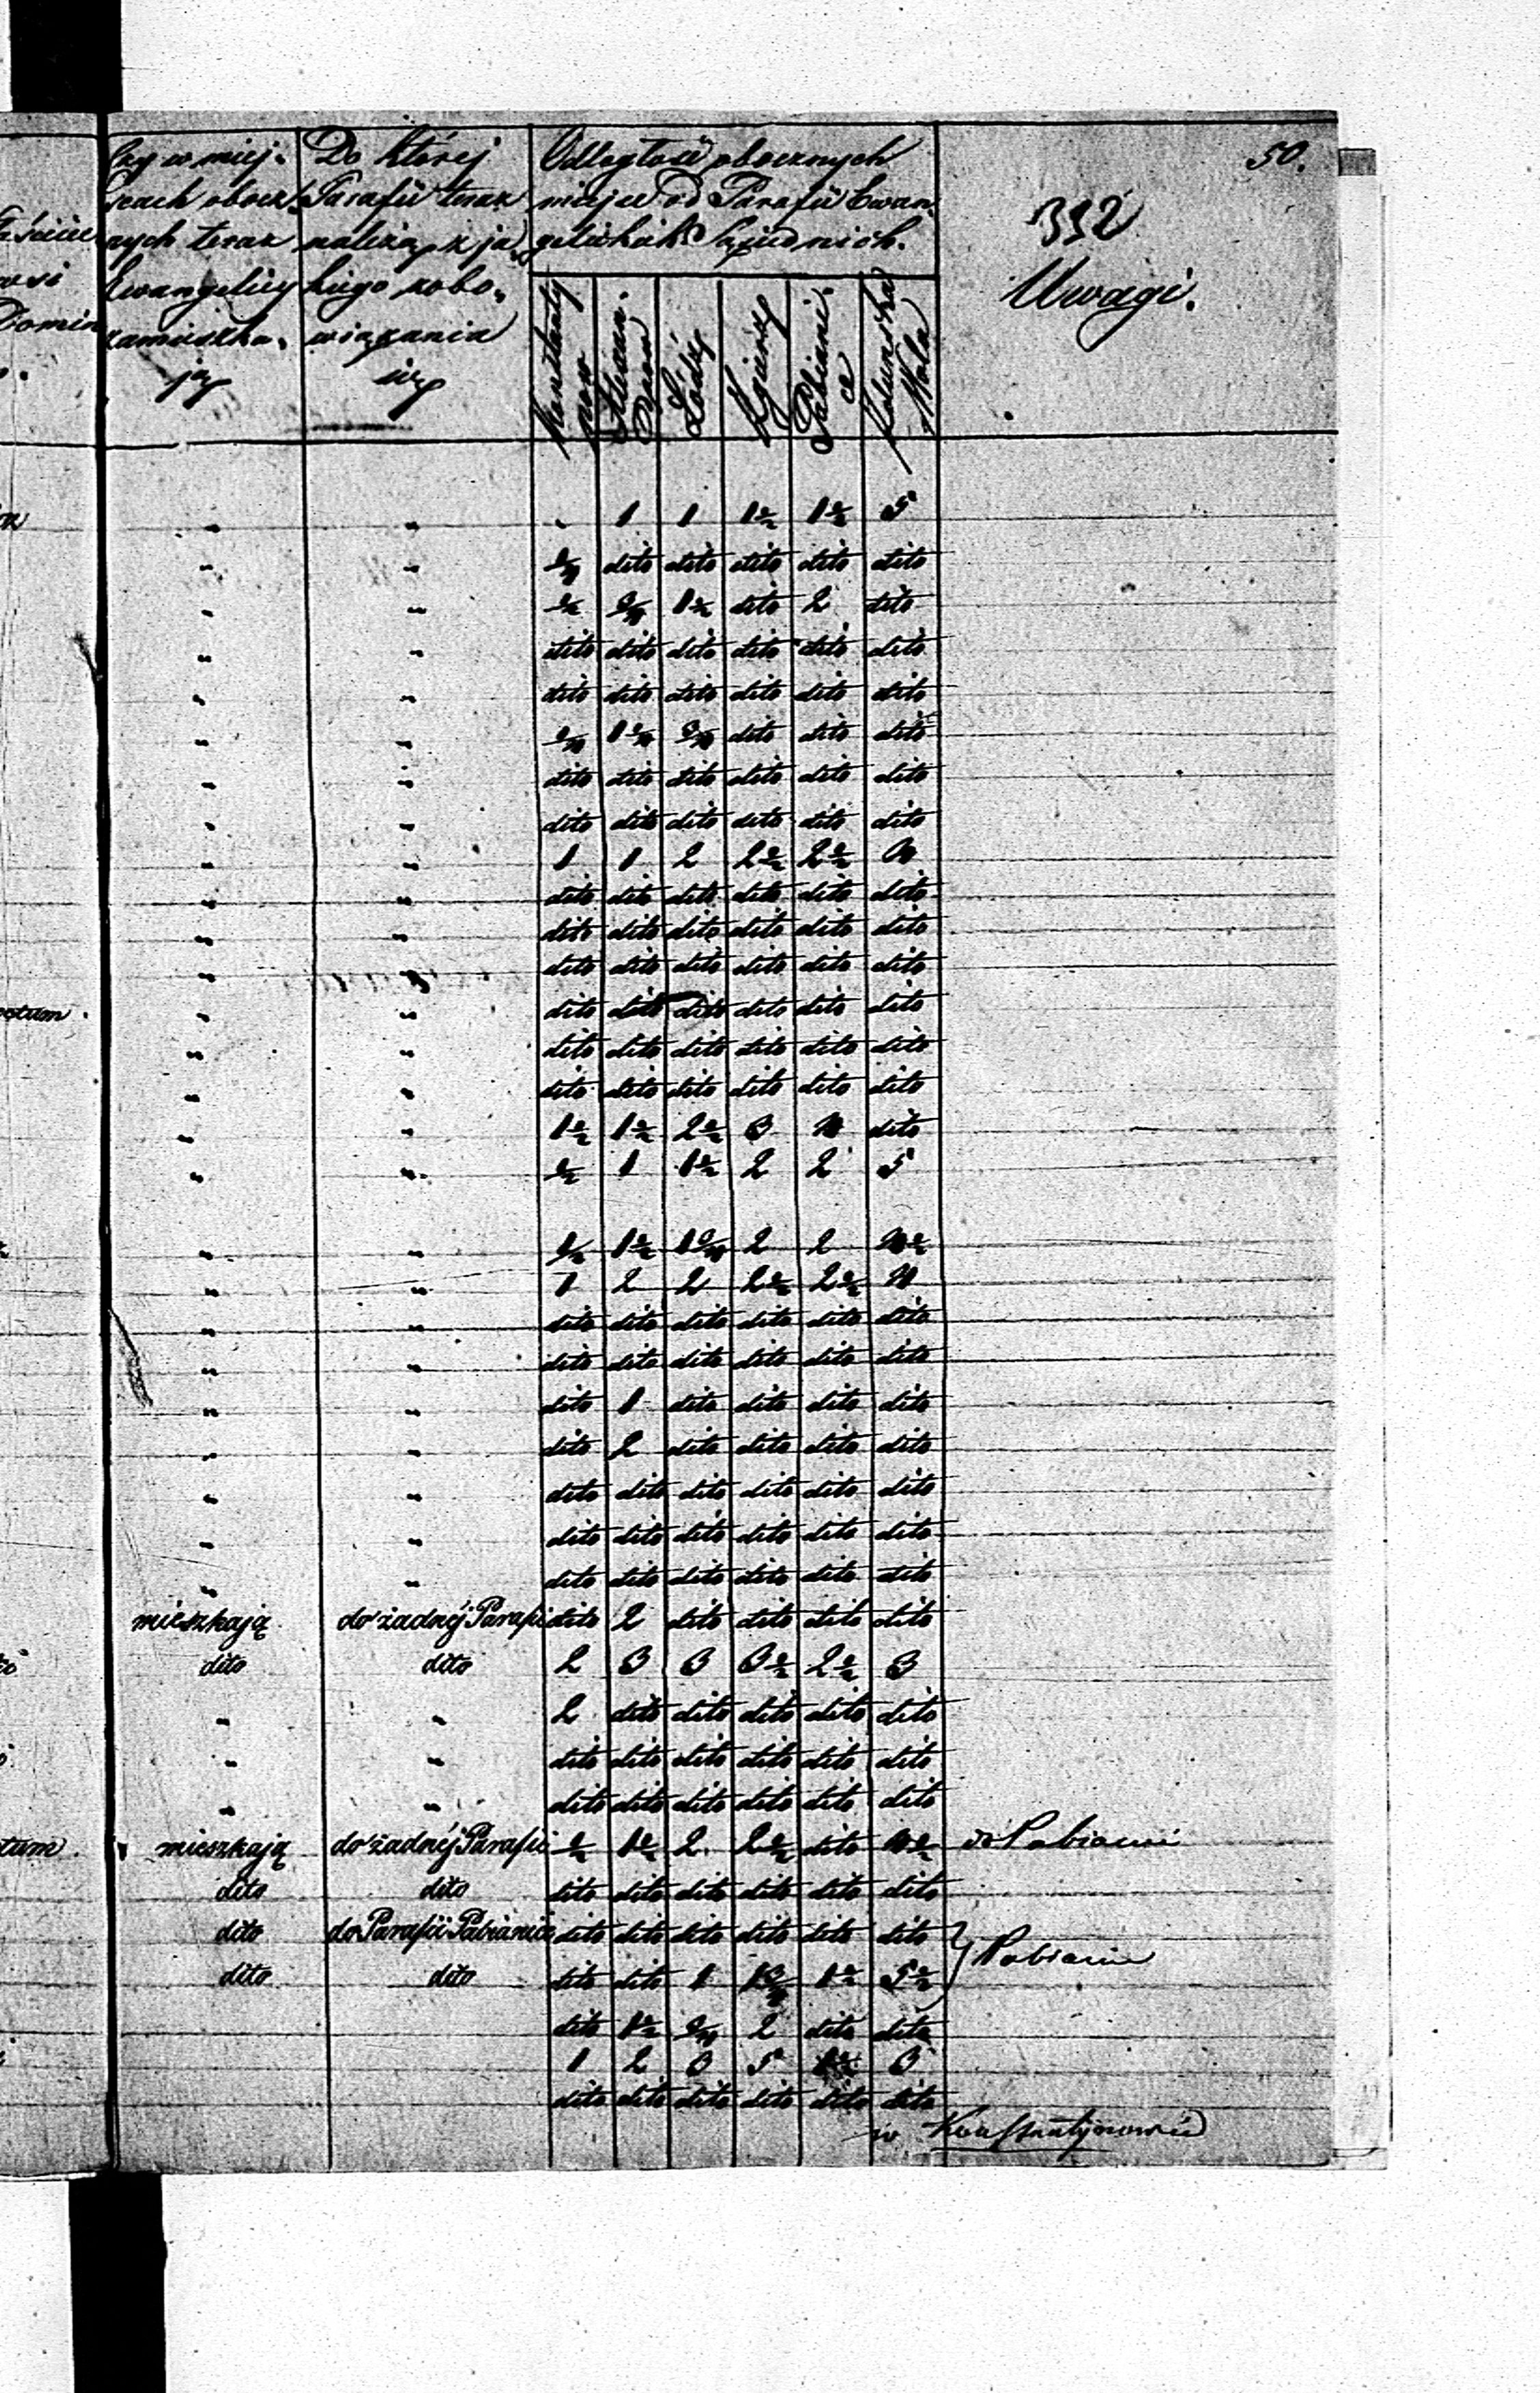 50.
332
Czy w miej-
scach obocz-
nych teraz
Ewangelicy
zamieszku-
ją
Do której
Parafii teraz
należą, z ja-
kiego zobo-
wiązania
się
Odległość obocznych
miejsc od Parafii Ewan-
gelickich Sąsiednich.
Konstanty
now
Łódź
Zgierz
Pabiani-
ce
Wola
Uwagi.
" " " 1 1 1½ 1½ 5
" " dito dito dito dito dito
" " 1½ dito 2 dito
" " dito dito dito dito dito dito
" " dito dito dito dito dito dito
" " dito dito dito
" " dito dito dito dito dito dito
" " dito dito dito dito dito dito
" " 1 1 2 2½ 2½ 4
" " dito dito dito dito dito dito
" " dito dito dito dito dito dito
" " dito dito dito dito dito dito
otum. " " dito dito dito dito dito dito
" " dito dito dito dito dito dito
" " dito dito dito dito dito dito
" " 1½ 1½ 2½ 3 4 dito
" " ½ 1 1½ 2 2 5
" " ½ 1½ 2 2 4½
" " 1 2 2 2½ 2½ 4
" " dito dito dito dito dito dito
" " dito dito dito dito dito dito
" " dito 1 dito dito dito dito
" " dito 2 dito dito dito dito
" " dito dito dito dito dito dito
" " dito dito dito dito dito dito
" " dito dito dito dito dito dito
mieszkają do żadnéj Parafii dito 2 dito dito dito dito
dito dito 2 3 3 3½ 2½ 3
" " 2 dito dito dito dito dito
" " dito dito dito dito dito dito
" " dito dito dito dito dito dito
tum. mieszkają do żadnéj Parafii ½ 1½ 2 2½ dito 4½ do Pabianic
dito dito dito dito dito dito dito dito
dito do Parafii Pabianice dito dito dito dito dito dito
dito dito dito dito 1 1½ 5½
Pabianic
dito 1½ 2 dito dito
1 2 3 5 1½ 3
dito dito dito dito dito dito
w Konstantynowie